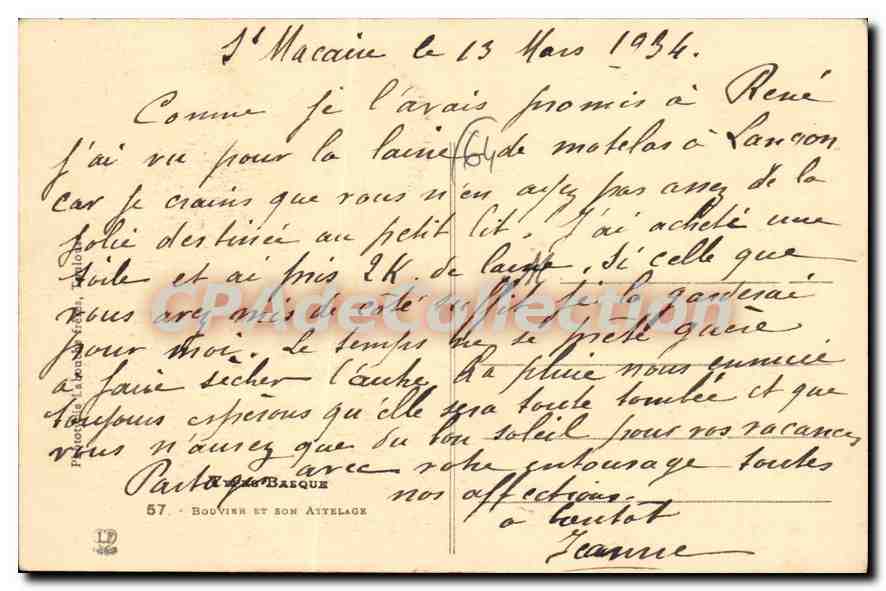 St Macaire le 13 Mars 1934.
Comme je l'avais promis à René
j'ai vu pour la laine de matelas à Langon
(64
car je crains que vous n'en ayez pas assez de la
jolie destinée au petit lit. J'ai acheté une
toile et ai pris 2K. de laine. Si celle que
vous avez mis de côté suffit je la garderai
pour moi. Le temps ne se prête guère
a faire sècher l'autre. La pluie nous ennuie
toujours espérons qu'elle sera toute tombée et que
vous n'aurez que du bon soleil pour vos vacances
Partage avec votre entourage toutes
nos affections.
a bientôt
Jeanne
Pays Basque
57. - Bouvier et son Attelage
Phototypie Labouche frères, Toulouse
LF
CPADeCollection